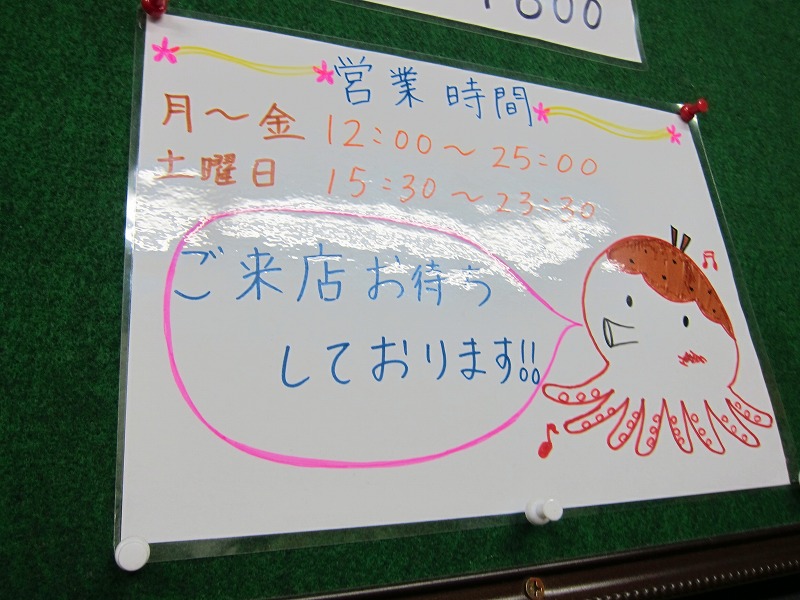 ¥600
営業時間
月〜金 12:00〜25:00
土曜日 15:30〜23:30
ご来店お待ち
しております!!